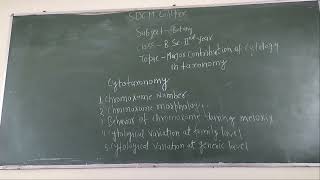 SDCM College
Subject - Botany
Class - B Sc IInd year
Topic - Major Contribution of Cytology
in taxonomy
Cytotaxonomy
1. Chromosome Number
2. Chromosome morphology
3. Behavior of chromosome during meiosis
4. Cytological variation at family level
5. Cytological variation at generic level